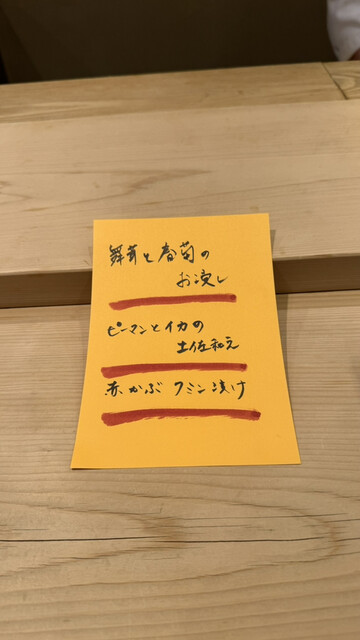 舞茸と春菊の
お浸し
ピーマンとイカの
土佐和え
赤かぶ クミン漬け